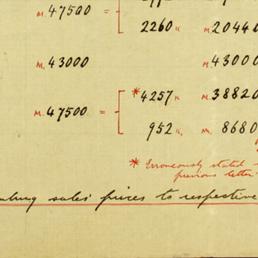 M. 47500 =
2260 M. 20440
M. 43000 43000
M. 47500 = * 4257 M. 38820
952 M. 8680
* Erroneously stated
previous letter
sales' prices to respective